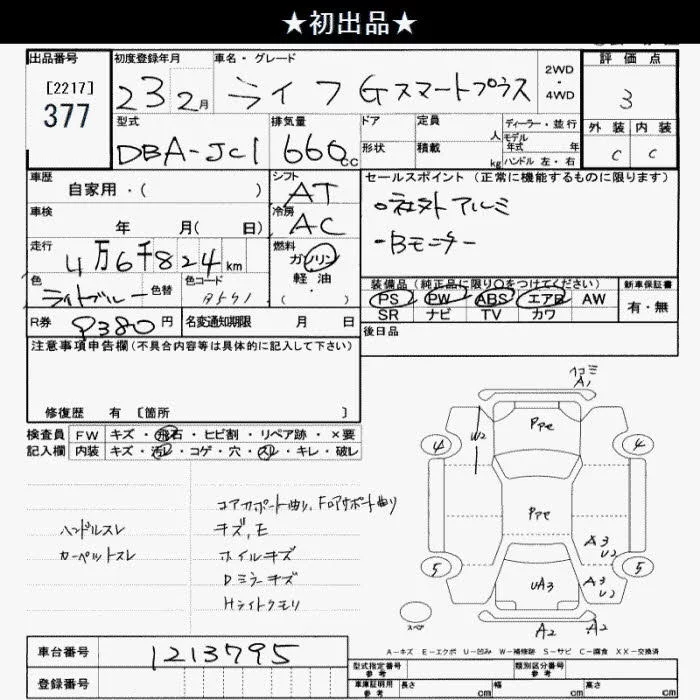 ★初出品★
出品番号 初度登録年月 車名・グレード 評価点
[2217]
377
23 2月 ライフ Gスマートプラス 2WD・4WD 3
型式 排気量 ドア 定員 人 ディーラー・並行 外装 内装
DBA-JC1 660cc 形状 積載 kg モデル年式 年 ハンドル 左・右 C C
車歴 シフト セールスポイント(正常に機能するものに限ります)
自家用・( ) AT ○社外アルミ
車検 冷房
年 月( 日) AC ・Bモニター
走行 燃料
4万6千824km ガソリン
色 色替 色コード 軽油
ライトブルー B541 ・( )
装備品(純正品に限り○をつけてください) 新車保証書
PS PW ABS エアB AW 有・無
SR ナビ TV カワ
R券 8380円 名変通知期限 月 日 後日品
注意事項申告欄(不具合内容等は具体的に記入して下さい)
修復歴 有 [箇所 ]
検査員 FW キズ・飛石・ヒビ割・リペア跡・×要
記入欄 内装 キズ・汚レ・コゲ・穴・スレ・キレ・破レ
コアサポート曲り、Fロアサポート曲り
ハンドルスレ キズ、E
カーペットスレ ホイルキズ
Dミラーキズ
Hライトクモリ
A1
W2 PPe
4 4
PPe
A3
U2
5 5
UA3 A3
U2
スペア A2 A2
A-キズ E-エクボ U-凹み W-補修跡 S-サビ C-腐食 XX-交換済
車台番号 1213795
登録番号
型式指定番号 参考 類別区分番号 参考
車庫証明用 参考 長さ cm 幅 cm 高さ cm